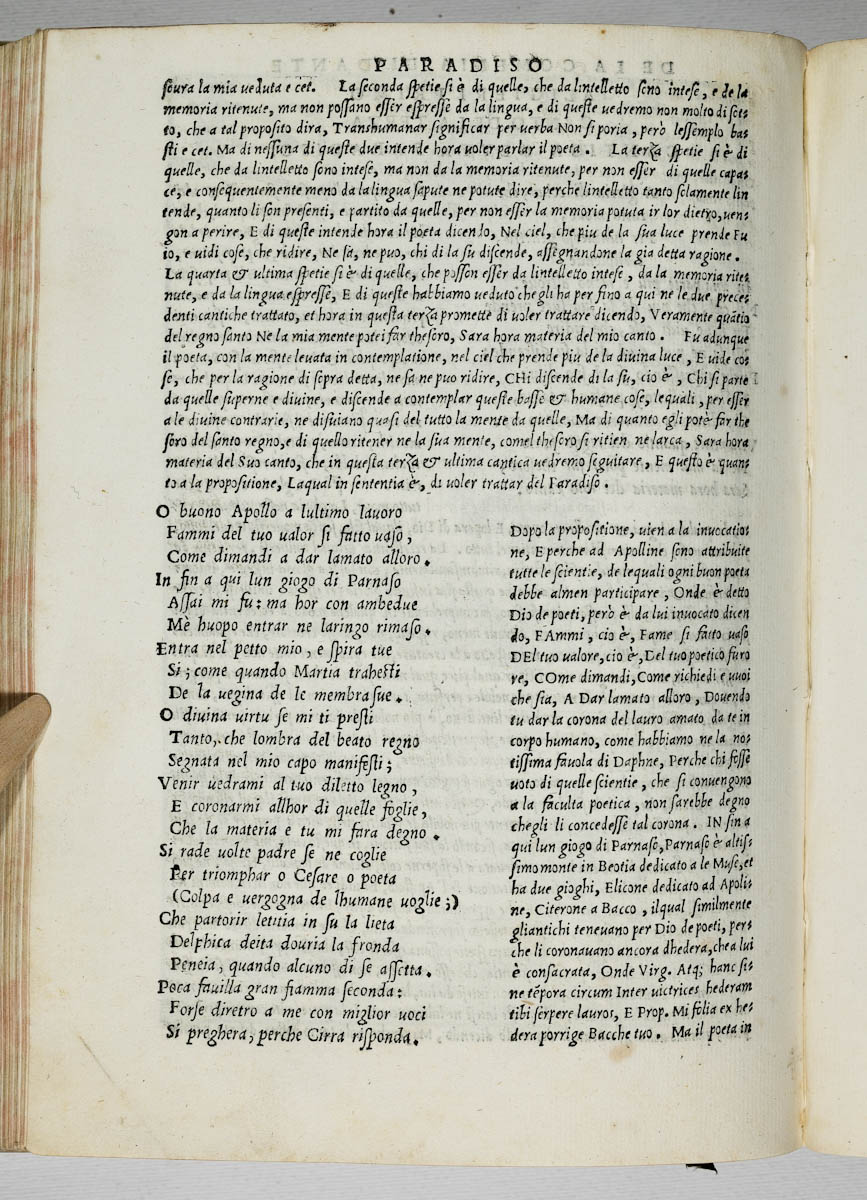 PARADISO
soura la mia veduta e cet. La seconda spetie si è di quelle, che da lintelletto sono intese, e de la
memoria ritenute, ma non possano esser espresse da la lingua, e di queste uedremo non molto di sot-
to, che a tal proposito dira, Transhumanar significar per uerba Non si poria, però lessemplo bas-
sti e cet. Ma di nessuna di queste due intende hora uoler parlar il poeta. La terza spetie si è di
quelle, che da lintelletto sono intese, ma non da la memoria ritenute, per non esser di quelle capa-
ce, e consequentemente meno da la lingua sapute ne potute dire, perche lintelletto tanto solamente lin
tende, quanto li son presenti, e partito da quelle, per non esser la memoria potuta ir lor dietro, uen-
gon a perire, E di queste intende hora il poeta dicendo, Nel ciel, che piu de la sua luce prende Fu
io, e uidi cose, che ridire, Ne sa, ne puo, chi di la su discende, assegnandone la gia detta ragione.
La quarta & ultima spetie si è di quelle, che posson esser da lintelletto intese, da la memoria rite-
nute, e da la lingua espresse, E di queste habbiamo ueduto chegli ha per fino a qui ne le due prece-
denti cantiche trattato, et hora in questa terza promette di uoler trattare dicendo, Veramente quãtio
del regno santo Ne la mia mente potei far thesoro, Sara hora materia del mio canto. Fu adunque
il poeta, con la mente leuata in contemplatione, nel ciel che prende piu de la diuina luce, E uide co-
se, che per la ragione di sopra detta, ne sa ne puo ridire, CHi discende di la su, cio è, Chi si parte
da quelle superne e diuine, e discende a contemplar queste basse & humane cose, lequali, per esser
a le diuine contrarie, ne disuiano quasi del tutto la mente da quelle, Ma di quanto egli potè far the
soro del santo regno, e di quello ritener ne la sua mente, comel thesoro si ritien ne larca, Sara hora
materia del Suo canto, che in questa terza & ultima cantica uedremo seguitare, E questo è quan-
to a la propositione, Laqual in sententia è, di uoler trattar del Paradiso.
O buono Apollo a lultimo lauoro
Fammi del tuo ualor si fatto uaso,
Come dimandi a dar lamato alloro.
In fin a qui lun giogo di Parnaso
Assai mi fu: ma hor con ambedue
Mè huopo entrar ne laringo rimaso.
Entra nel petto mio, e spira tue
Si; come quando Martia trahesti
De la uegina de le membra sue.
O diuina uirtu se mi ti presti
Tanto, che lombra del beato regno
Segnata nel mio capo manifesti;
Venir uedrami al tuo diletto legno,
E coronarmi allhor di quelle foglie,
Che la materia e tu mi fara degno.
Si rade uolte padre se ne coglie
Per triomphar o Cesare o poeta
(Colpa e uergogna de lhumane uoglie;)
Che partorir letitia in su la lieta
Delphica deita douria la fronda
Peneia, quando alcuno di se assetta.
Poca fauilla gran fiamma seconda:
Forse diretro a me con miglior uoci
Si preghera, perche Cirra risponda.
Dopo la propositione, uien a la inuocatio-
ne, E perche ad Apolline sono attribuite
tutte le scientie, de lequali ogni buon poeta
debbe almen participare, Onde è detto
Dio de poeti, però è da lui inuocato dicen
do, FAmmi, cio è, Fame si fatto uaso
DEl tuo ualore, cio è, Del tuo poetico furo
re, COme dimandi, Come richiedi e uuoi
che sia, A Dar lamato alloro, Douendo
tu dar la corona del lauro amato da te in
corpo humano, come habbiamo ne la no-
tissima fauola di Daphne, Perche chi fosse
uoto di quelle scientie, che si conuengono
a la faculta poetica, non sarebbe degno
chegli li concedesse tal corona. IN fin a
qui lun giogo di Parnaso, Parnaso è altis-
simo monte in Beotia dedicato a le Muse, et
ha due gioghi, Elicone dedicato ad Apoli-
ne, Citerone a Bacco, ilqual similmente
gliantichi teneuano per Dio de poeti, per-
che li coronauano ancora dhedera, chea lui
è consacrata, Onde Virg. Atq; hanc si-
ne tẽpora circum Inter uictrices hederam
tibi serpere lauros, E Prop. Mi folia ex he-
dera porrige Bacche tuo. Ma il poeta in